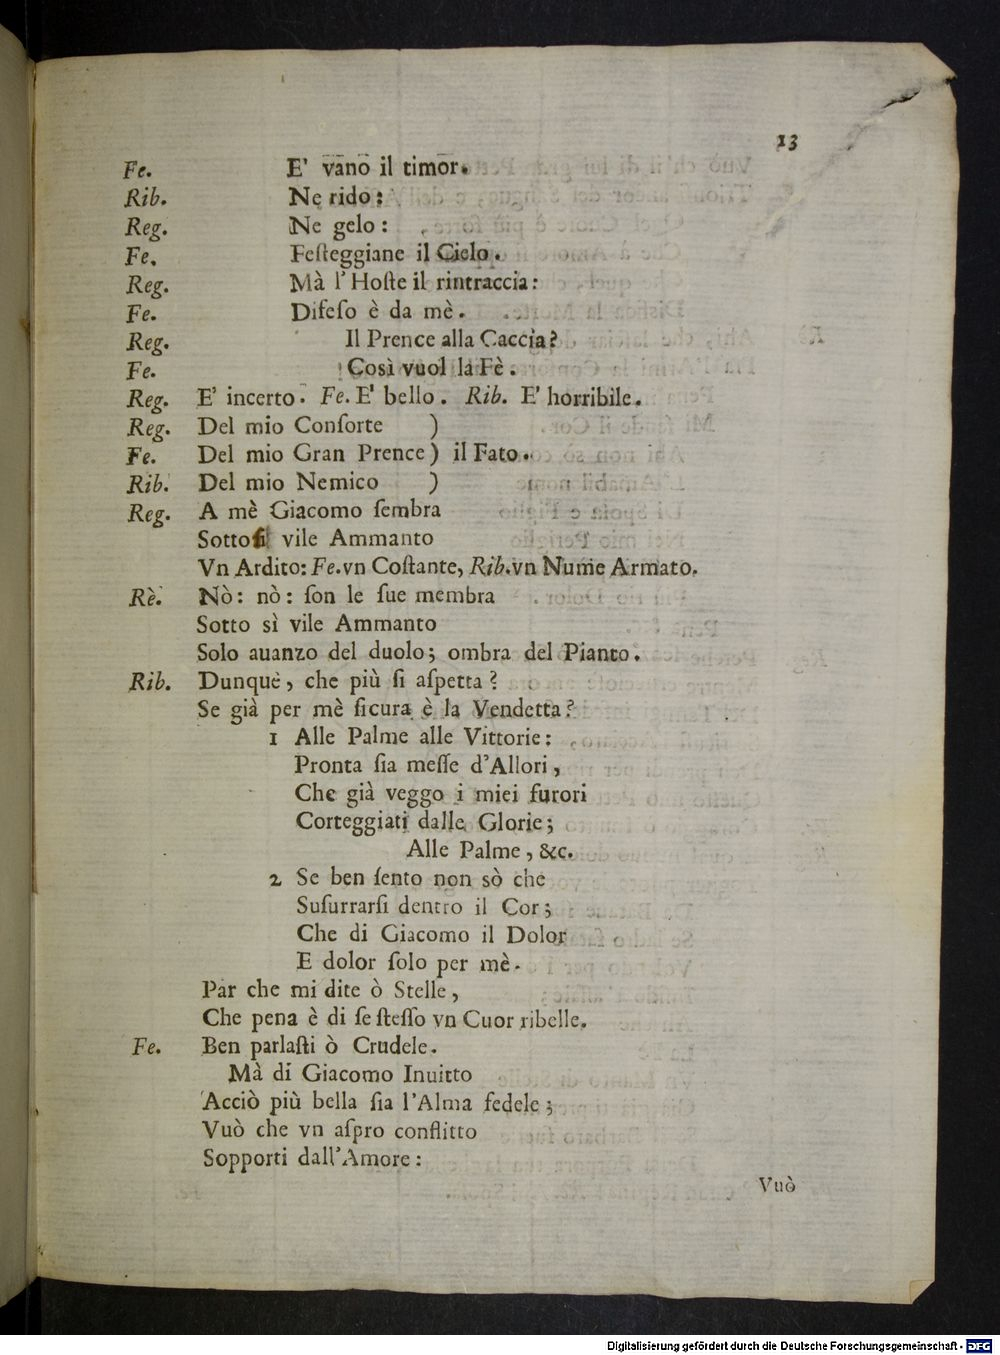 13
Fe. E' vano il timor.
Rib. Ne rido:
Reg. Ne gelo:
Fe. Feſteggiane il Cielo.
Reg. Mà l'Hoſte il rintraccia:
Fe. Difeſo è da mè.
Reg. Il Prence alla Caccia?
Fe. Così vuol la Fè.
Reg. E' incerto. Fe. E' bello. Rib. E' horribile.
Reg. Del mio Conſorte )
Fe. Del mio Gran Prence ) il Fato.
Rib. Del mio Nemico )
Reg. A mè Giacomo ſembra
Sotto ſi vile Ammanto
Vn Ardito: Fe. vn Coſtante, Rib. vn Nume Armato.
Rè. Nò: nò: ſon le ſue membra
Sotto sì vile Ammanto
Solo auanzo del duolo; ombra del Pianto.
Rib. Dunque, che più ſi aſpetta?
Se già per mè ſicura è la Vendetta?
1 Alle Palme alle Vittorie:
Pronta ſia meſſe d'Allori,
Che già veggo i miei furori
Corteggiati dalle Glorie;
Alle Palme, &c.
2 Se ben ſento non sò che
Suſurrarſi dentro il Cor;
Che di Giacomo il Dolor
E dolor ſolo per mè.
Par che mi dite ò Stelle,
Che pena è di ſe ſteſſo vn Cuor ribelle.
Fe. Ben parlaſti ò Crudele.
Mà di Giacomo Inuitto
Acciò più bella ſia l'Alma fedele;
Vuò che vn aſpro conflitto
Sopporti dall'Amore:
Vuò
Digitalisierung gefördert durch die Deutsche Forschungsgemeinschaft - DFG